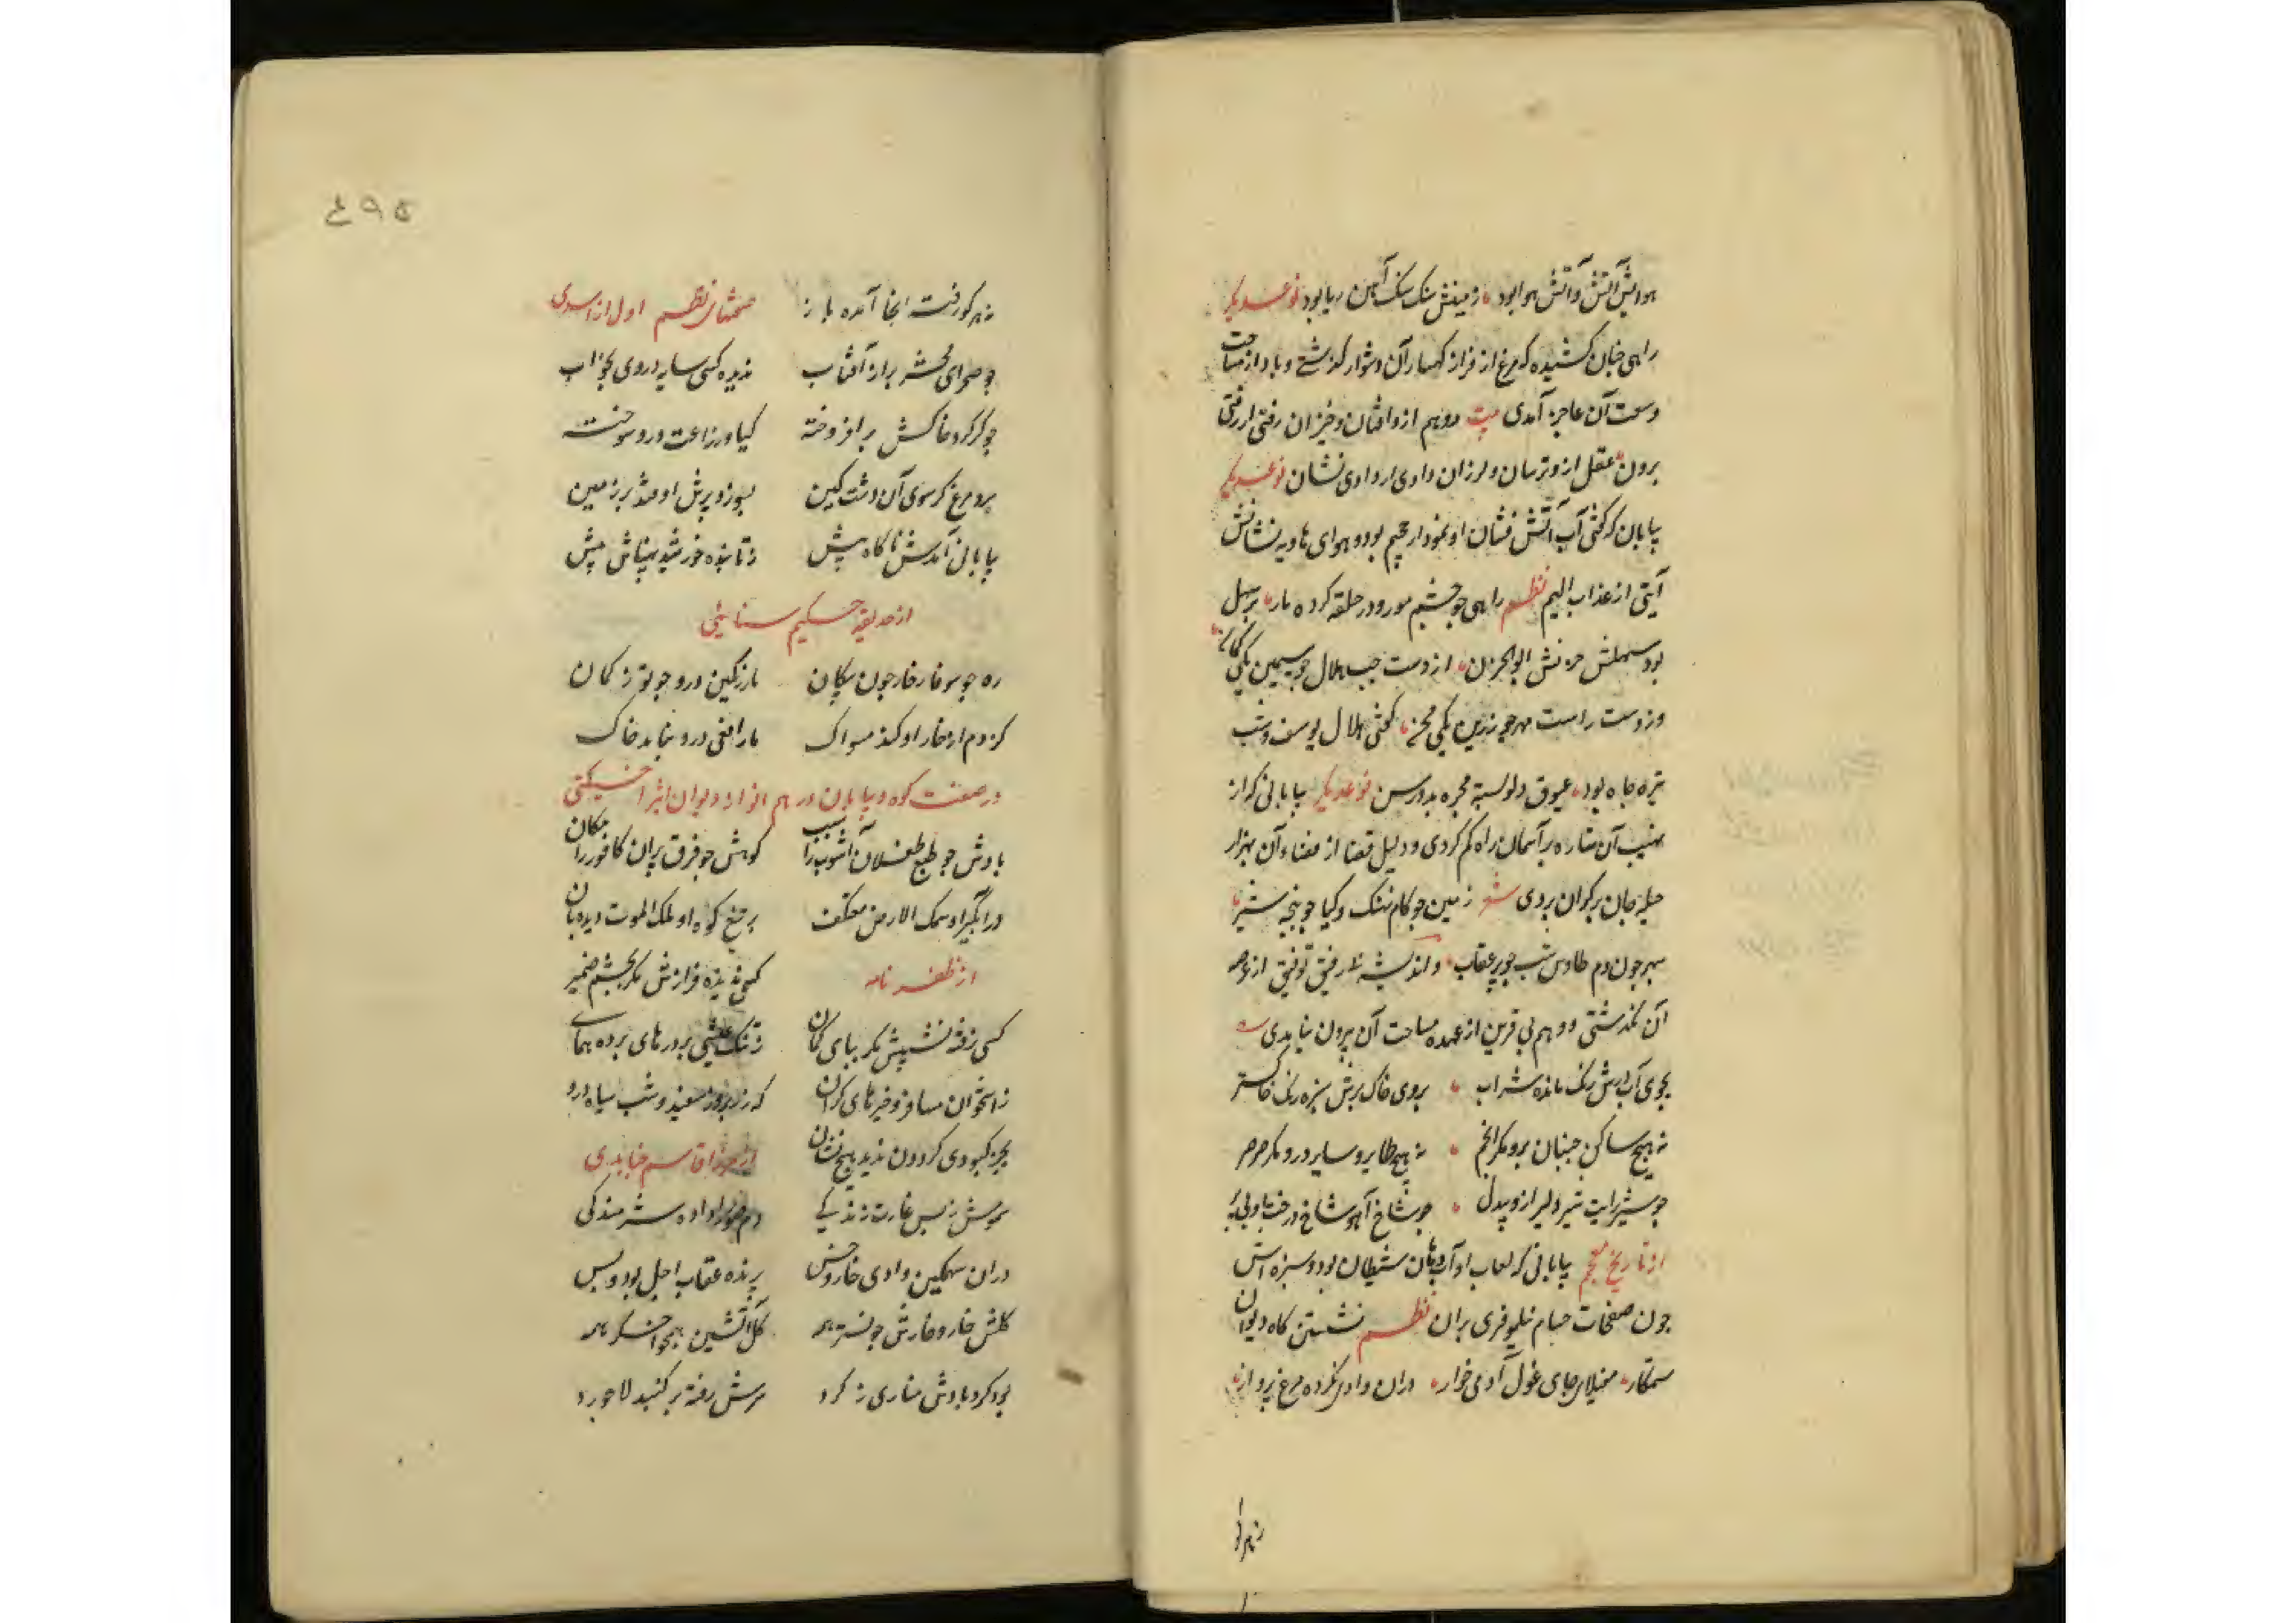 هوایش آتش و آتش هوا بود زمینش سنک سنک آهن ربا بود نوعدیکر
راهی چنان کشیده که مرغ از فراز کهسار آن دشوار کذشتی و باد از مساحت
وسعت آن عاجز آمدی بیت وهم ازو افتان و خیزان رفتی ار رفتی
برون عقل ازو ترسان و لرزان دادی ار دادی نشان نوعدیکر
بیابان که کفتی آب آتش فشان او نمودار جحیم بود و هوای هاویه نشانش
آیتی از عذاب الیم نظم راهی چو چشم مور و در حلقه کرده مار بر سهل
بود سهلش حزنش ابوالحزن از دست چپ هلال چو سیمین یکی کمان
وز دست راست مهر چو زرین یکی مجن کفتی هلال یوسف و شب
تیره چاه بود عیوق دلو بسته مجره بدو رسن نوعدیکر بیابانی که از
نهیب آن ستاره بر آسمان راه کم کردی و دلیل قضا از فضاء آن بهزار
حیله جان بر کران بردی شعر زمین چو کام نهنک و کیا چو پنجه شیر
سپهر چون دم طاوس شب چو پر عقاب و اندیشه نا رفیق توفیق از عرصه
آن نکذشتی و وهم بی قرین از عهده مساحت آن بیرون نیامدی
بجوی آب درش رنک مانده شراب بروی خاک برش سبزه رنک خاکستر
نه هیچ ساکن جنبان برو مکر انجم نه هیچ طایر و سایر درو مکر صرصر
چو شیر رایت شیر دلیر ازو بیدل چو شاخ آهو شاخ درخت او بی بر
از تاریخ معجم بیابانی که لعاب او آب دهان شیطان بود و سبزه اش
چون صفحات حسام نیلوفری بران نظم نشستن کاه دیوان
ستمکار مغیلان جای غول آدمی خوار دران وادی نکرده مرغ پرواز
نه هرکو
نه هر کو رفت انجا آمده باز
نظم اول از اسدی
چو صحرای محشر بر از آفتاب ندیده کسی سایه در وی بخواب
چو کرکرد خاکش برافروخته کیا و زراعت درو سوخته
برد مرغ کر سوی آن دشت کین بسوزد پرش اوفتد بر زمین
بیابانی آمدش ناکاه پیش ز تابنده خورشید پهناش بیش
از حدیقه حکیم سنائی
ره چو سوفار خار چون پیکان مار رنکین درو چو توز کمان
کزدم از خار او کند مسواک مار افعی درو نیابد خاک
در صفت کوه و بیابان درهم از دیوان اثیر اخسیکتی
بادش چو طبع طفلان آشوب را سبب کوهش چو فرق پیران کافور را مکان
در آبکیر او سمک الارض معتکف بر تیغ کوه او ملک الموت دیده بان
از ظفر نامه
کسی ندیده فرازش مکر بچشم ضمیر
کسی نرفته نشیبش مکر بپای کمان ز تنک عیشی برو رهای برده همای
ز استخوان مسافر ذخیرهای کران که زد بروز سفید و شب سیاه درو
بجز کبودی کردون ندید هیچ نشان از میرزا قاسم جنابدی
سموش ز بس غارت زندکی دم صور را داده شرمندکی
دران سهمکین وادی خار و خس پرنده عقاب اجل بود و بس
کلش خار و خارش چو نشتر همه کل آتشین همچو اخکر همه
بود کردبادش مناری ز کرد سرش رفته بر کنبد لاجورد